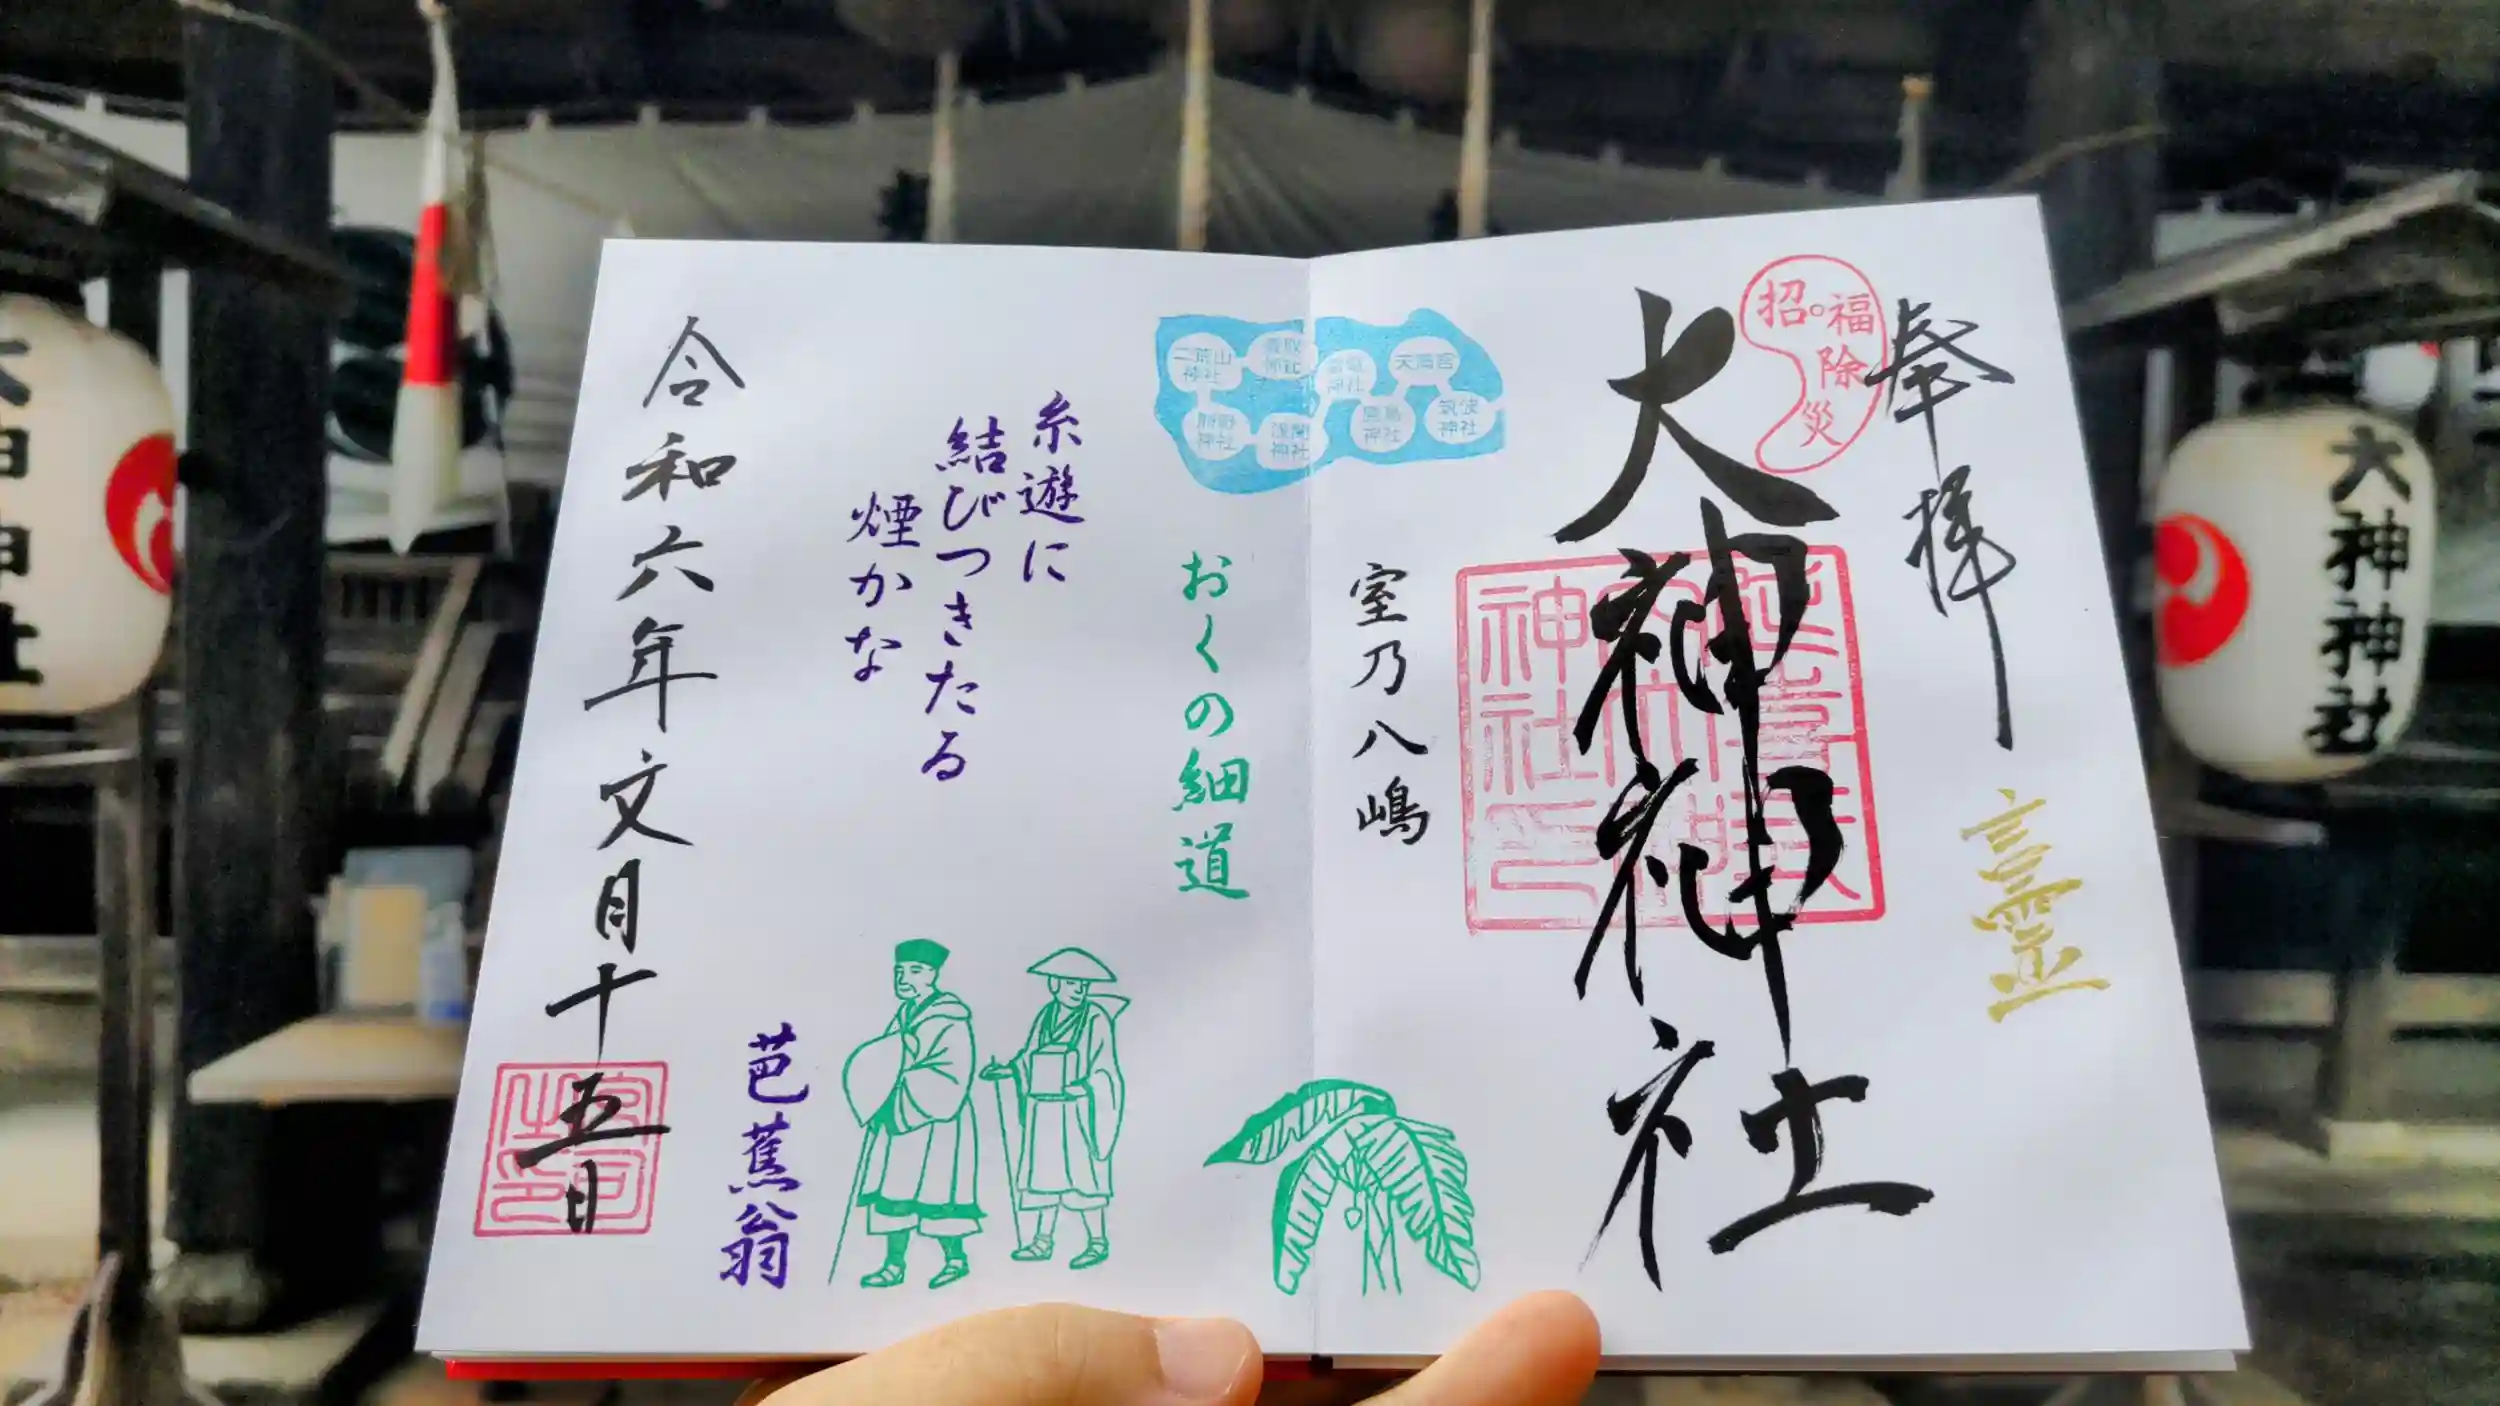 奉拝
招福除災
大神神社
延喜式内大神神社印
室乃八嶋
天満宮
筑波神社
鹿島神社
雷電神社
浅間神社
香取神社
二荒山神社
熊野神社
おくの細道
糸遊に
結びつきたる
煙かな
芭蕉翁
令和六年文月十五日
宮司之印
大神神社
大神神社